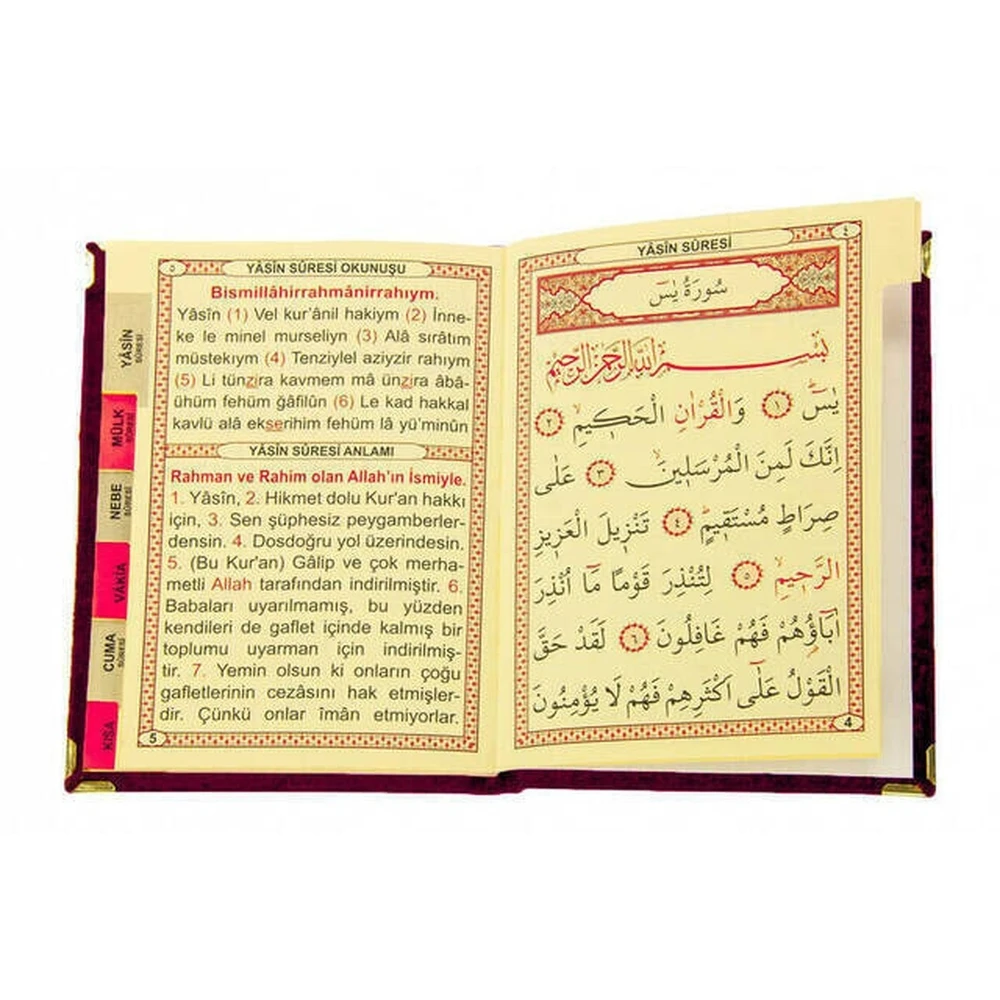 YÂSÎN SÛRESİ
٤
سُورَةُ يٰسٓ
بِسْمِ اللّٰهِ الرَّحْمٰنِ الرَّحٖيمِ
يٰسٓ ﴿١﴾ وَالْقُرْاٰنِ الْحَكٖيمِۙ ﴿٢﴾
اِنَّكَ لَمِنَ الْمُرْسَلٖينَۙ ﴿٣﴾ عَلٰى
صِرَاطٍ مُسْتَقٖيمٍؕ ﴿٤﴾ تَنْزٖيلَ الْعَزٖيزِ
الرَّحٖيمِۙ ﴿٥﴾ لِتُنْذِرَ قَوْمًا مَٓا اُنْذِرَ
اٰبَٓاؤُ۬هُمْ فَهُمْ غَافِلُونَ ﴿٦﴾ لَقَدْ حَقَّ
الْقَوْلُ عَلٰٓى اَكْثَرِهِمْ فَهُمْ لَا يُؤْمِنُونَ
4
٥
YÂSÎN SÛRESİ OKUNUŞU
Bismillâhirrahmânirrahıym.
Yâsîn (1) Vel kur'ânil hakiym (2) İnne-
ke le minel murseliyn (3) Alâ sırâtım
müstekıym (4) Tenziylel aziyzir rahıym
(5) Li tünzira kavmem mâ ünzira âbâ-
ühüm fehüm ğâfilûn (6) Le kad hakkal
kavlü alâ ekserihim fehüm lâ yü'minûn
YÂSÎN SÛRESİ ANLAMI
Rahman ve Rahim olan Allah'ın İsmiyle.
1. Yâsîn, 2. Hikmet dolu Kur'an hakkı
için, 3. Sen şüphesiz peygamberler-
densin. 4. Dosdoğru yol üzerindesin.
5. (Bu Kur'an) Gâlip ve çok merha-
metli Allah tarafından indirilmiştir. 6.
Babaları uyarılmamış, bu yüzden
kendileri de gaflet içinde kalmış bir
toplumu uyarman için indirilmiş-
tir. 7. Yemin olsun ki onların çoğu
gafletlerinin cezasını hak etmişler-
dir. Çünkü onlar îmân etmiyorlar.
5
YÂSÎN
SÛRESİ
MÜLK
SÛRESİ
NEBE
SÛRESİ
VÂKIA
CUMA
SÛRESİ
KISA